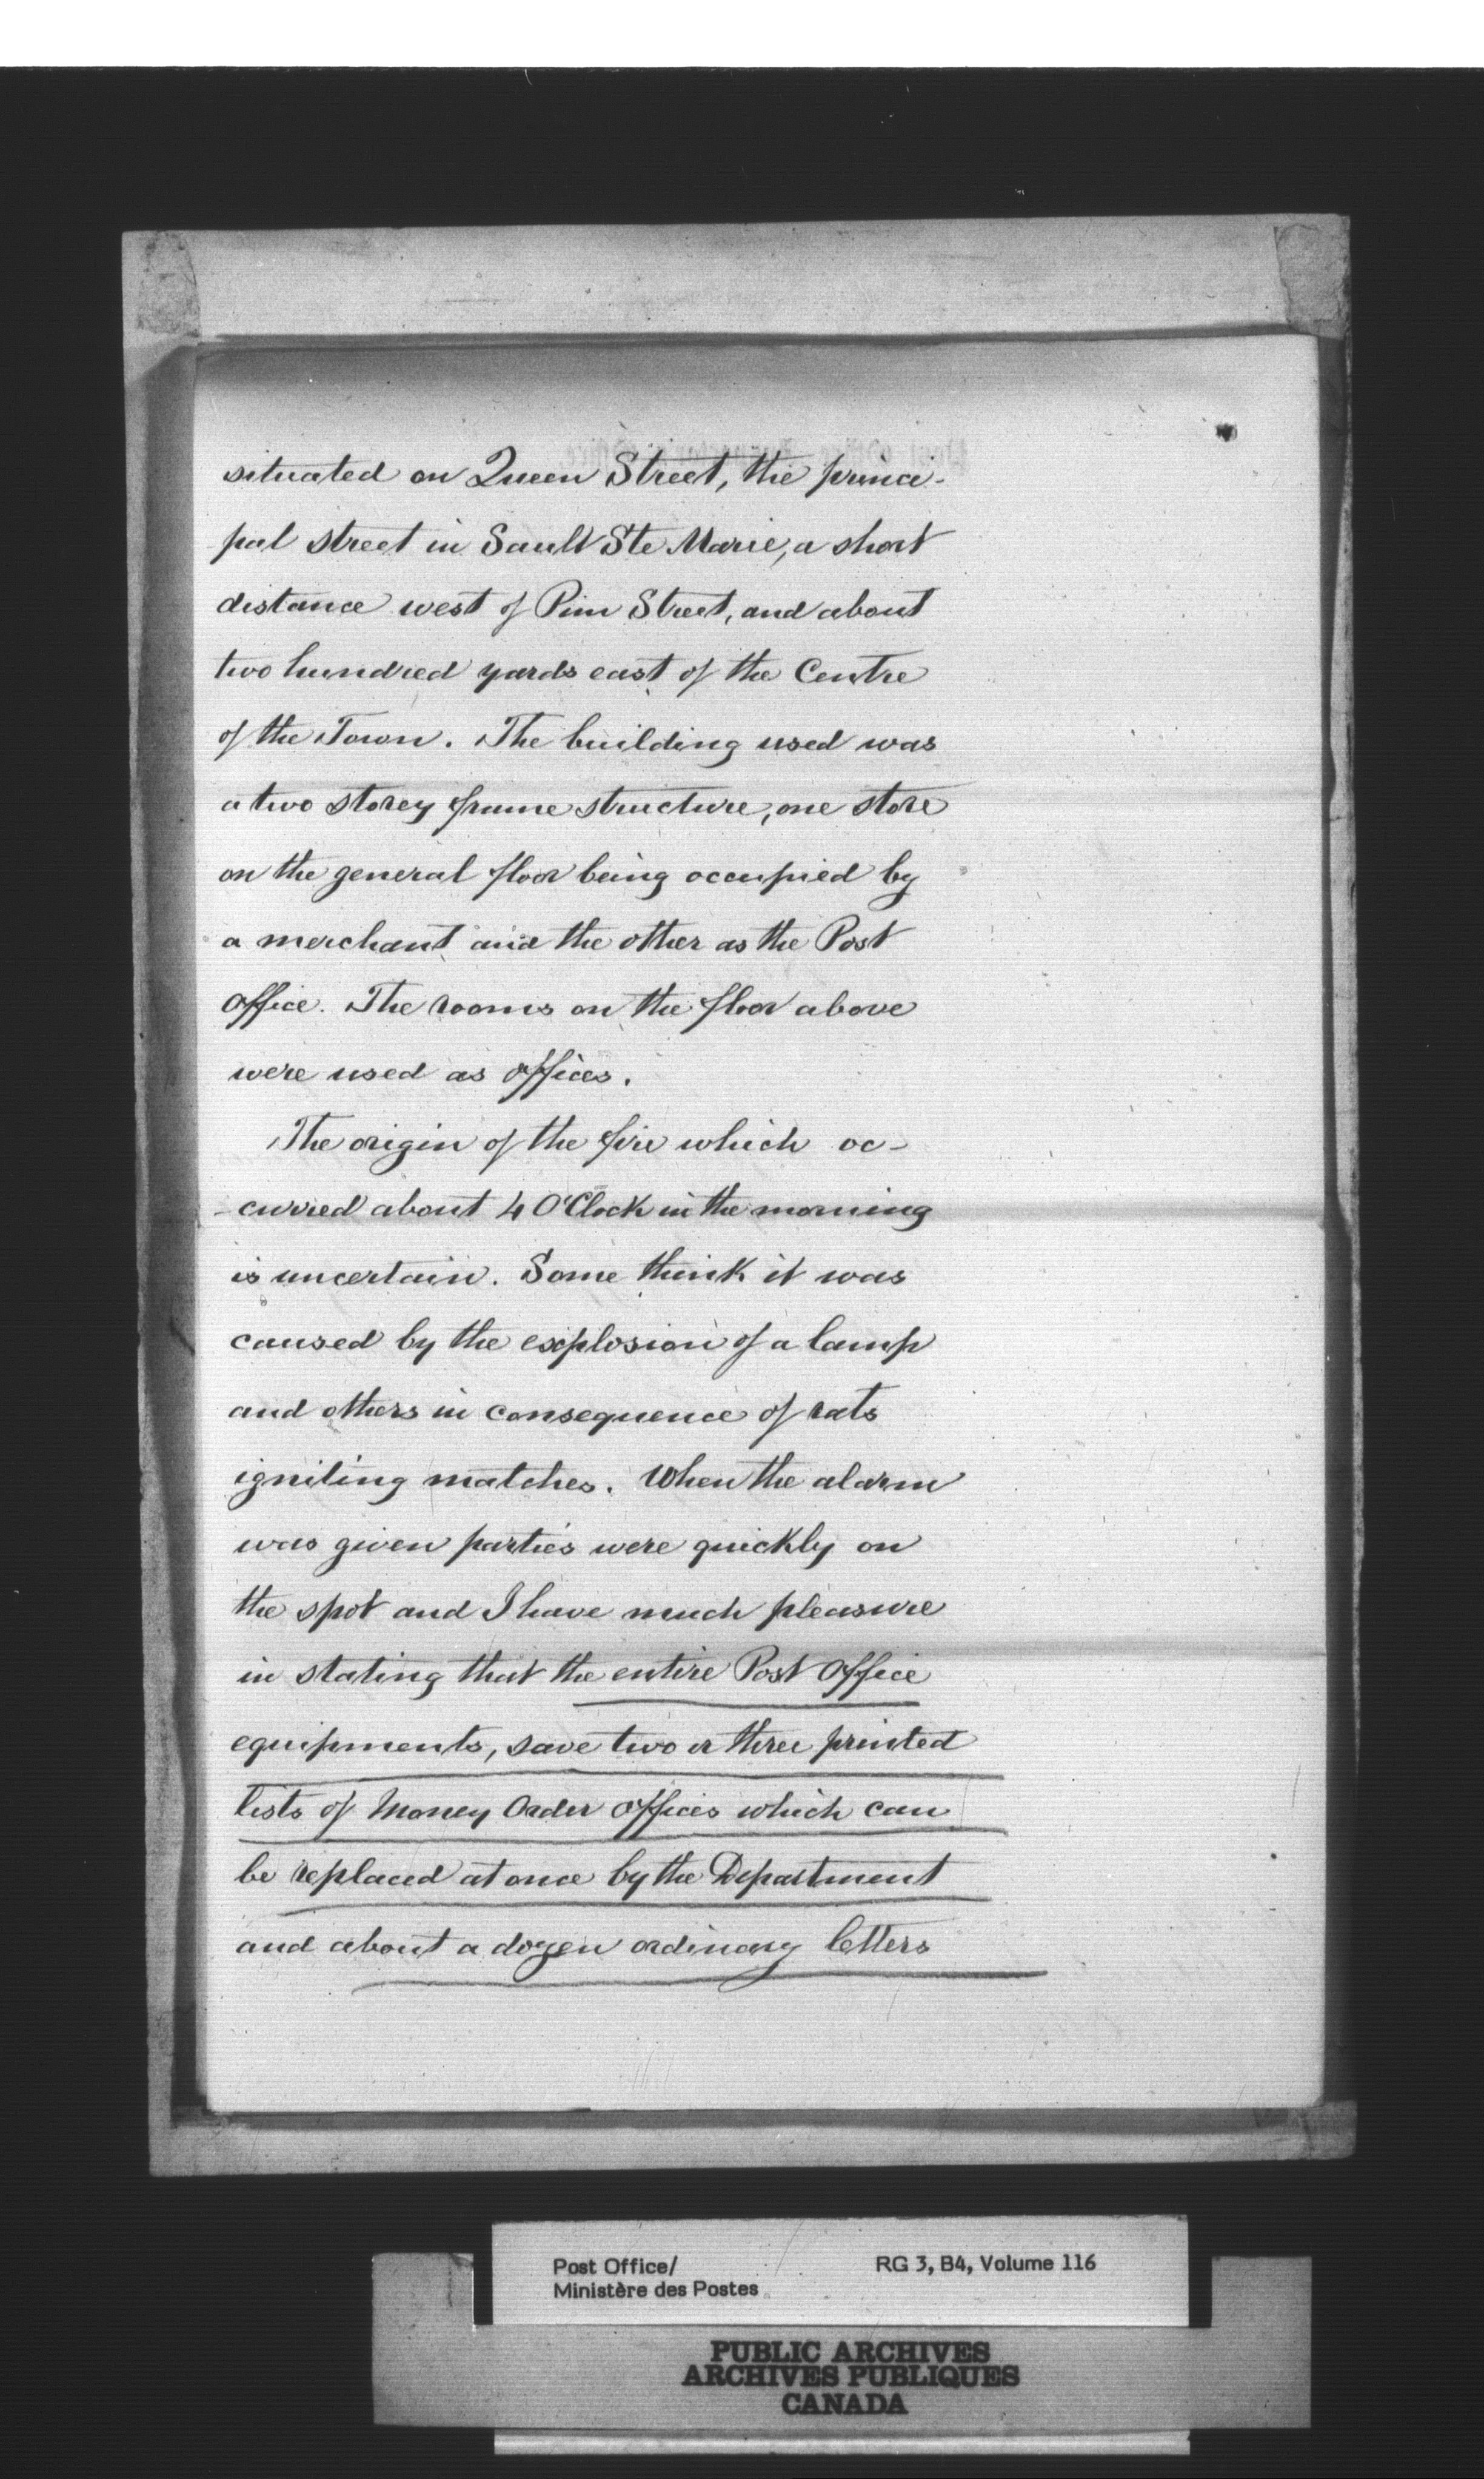 situated on Queen Street, the princi-
pal street in Sault Ste Marie, a short
distance west of Pim Street, and about
two hundred yards east of the Centre
of the Town. The building used was
a two storey frame structure, one store
on the general floor being occupied by
a merchant and the other as the Post
Office. The rooms on the floor above
were used as offices.
The origin of the fire which oc-
-curred about 4 O'Clock in the morning
is uncertain. Some think it was
caused by the explosion of a lamp
and others in consequence of rats
igniting matches. When the alarm
was given parties were quickly on
the spot and I have much pleasure
in stating that the entire Post Office
equipments, save two or three printed
lists of Money Order Offices which can
be replaced at once by the Department
and about a dozen ordinary letters
Post Office/
Ministère des Postes
RG 3, B4, Volume 116
PUBLIC ARCHIVES
ARCHIVES PUBLIQUES
CANADA